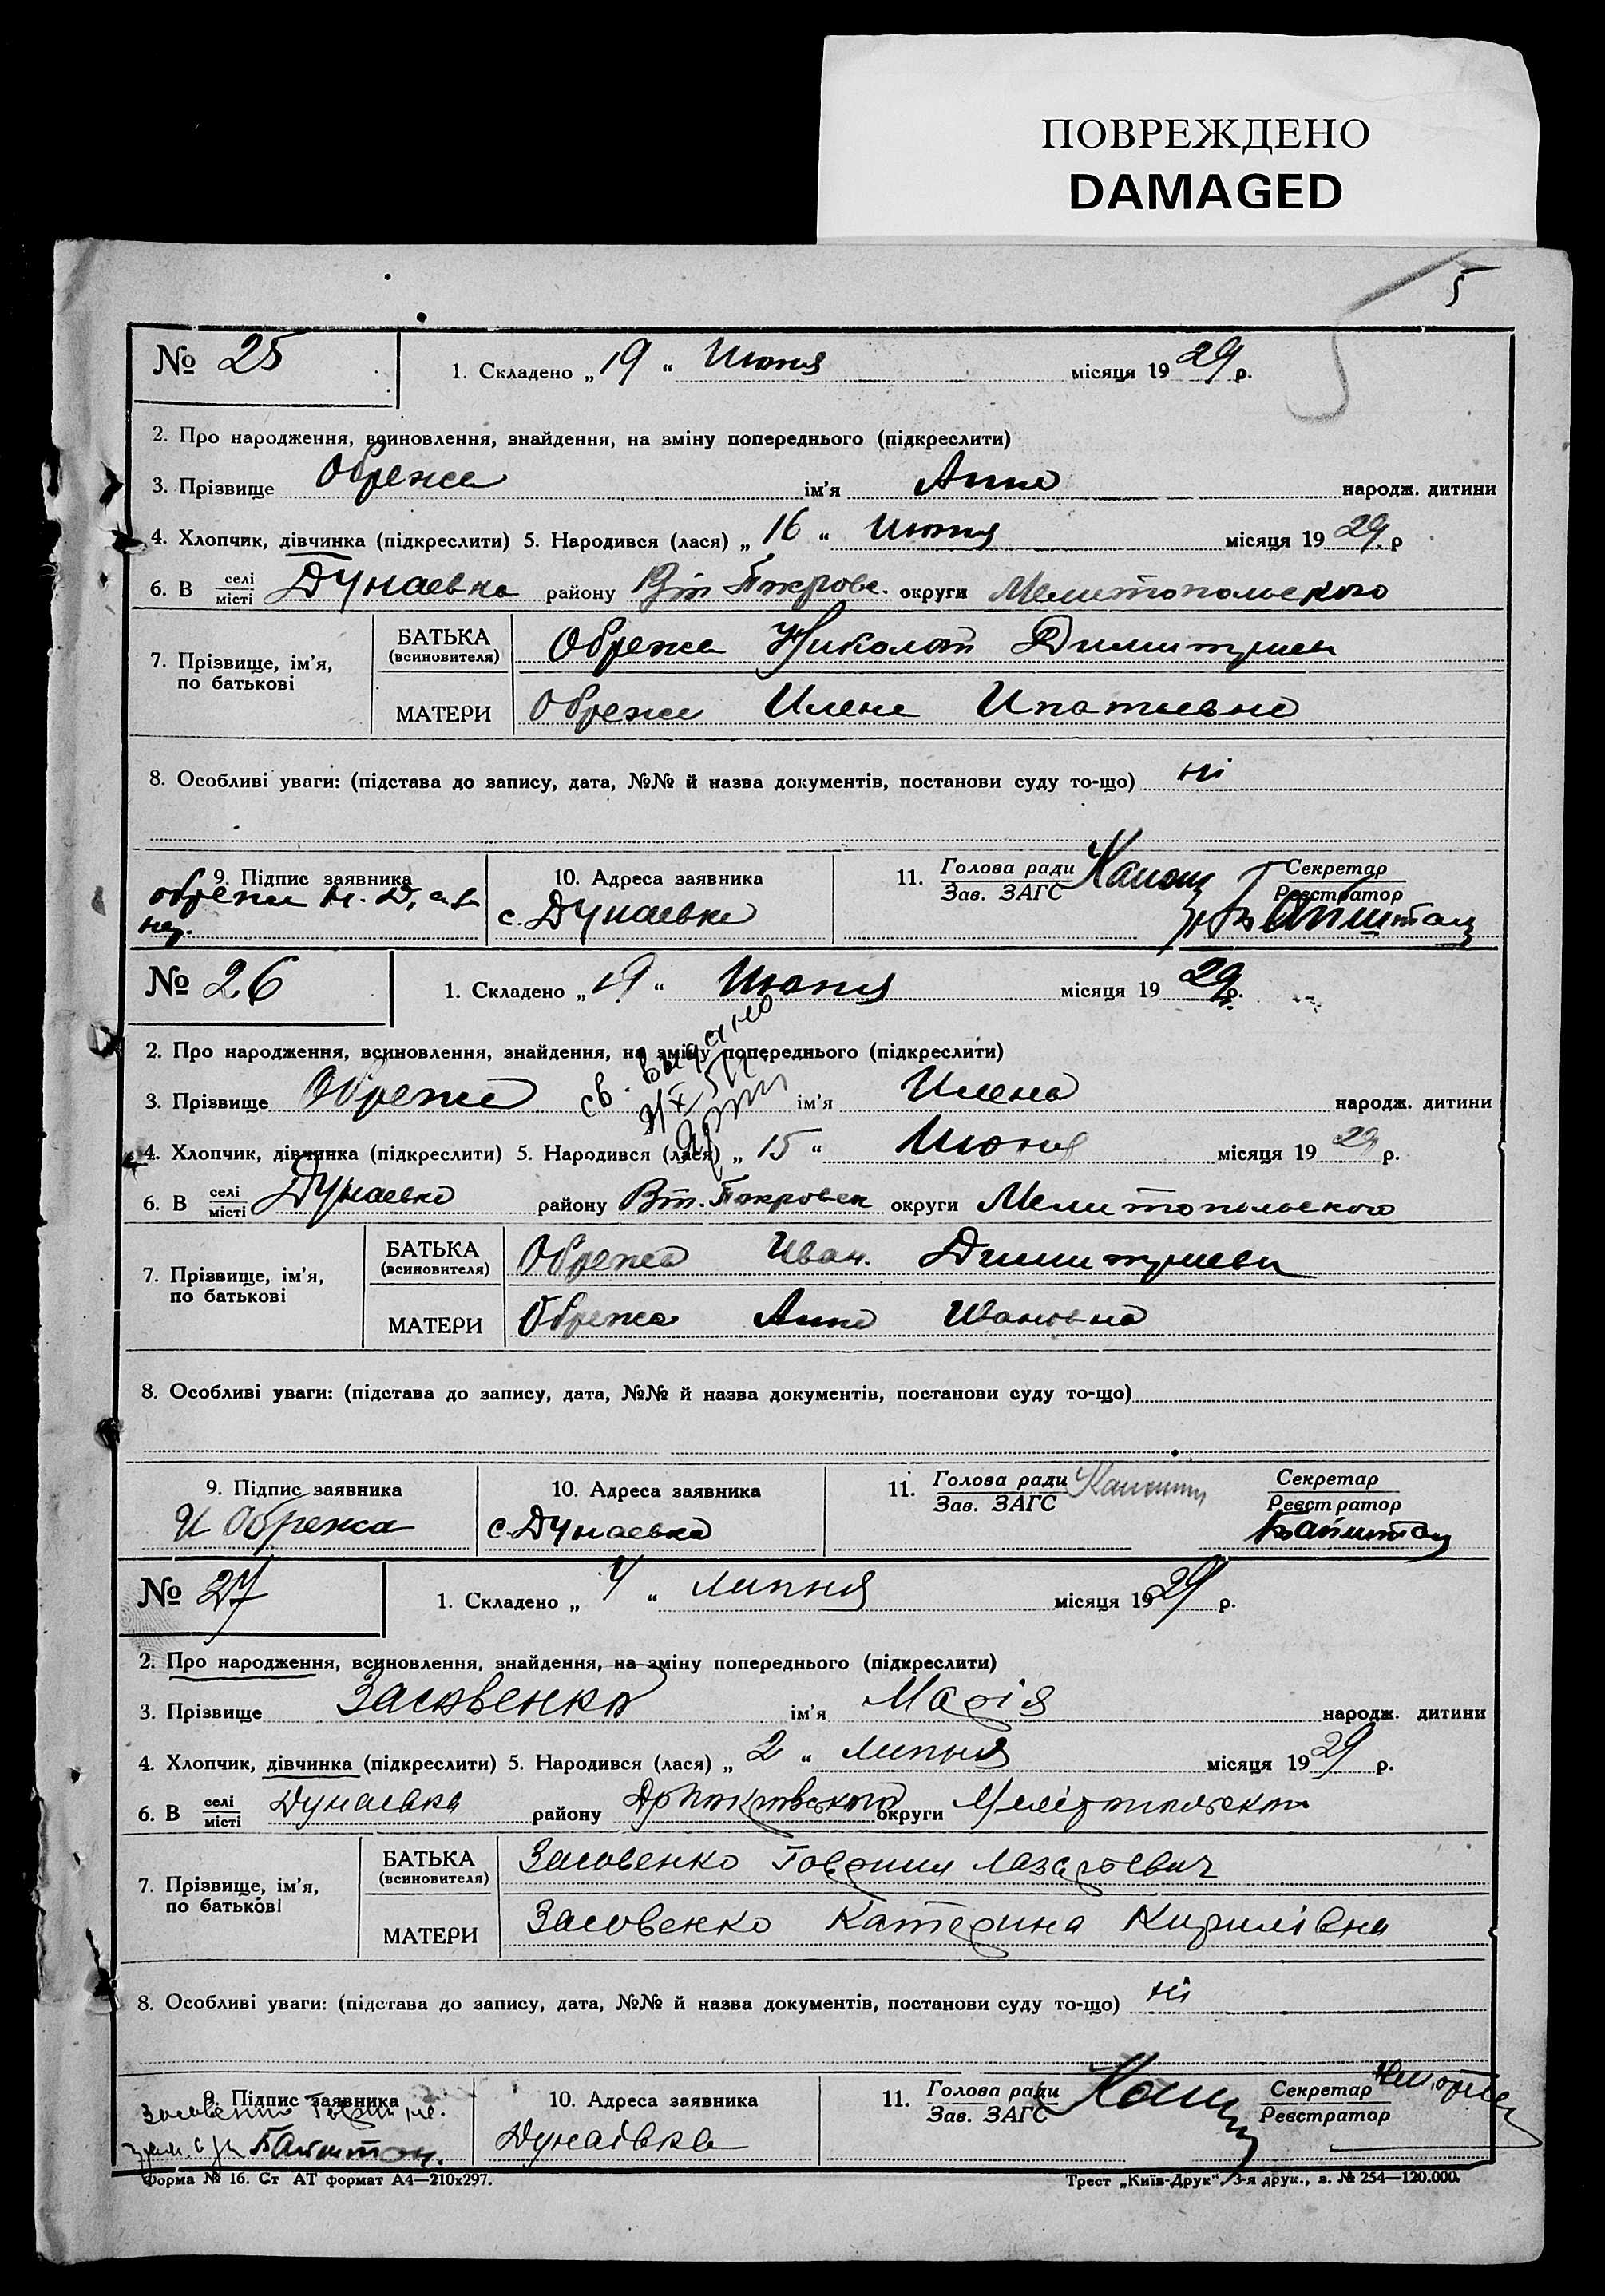 ПОВРЕЖДЕНО
DAMAGED
5
№ 25
1. Складено „ 19 “ Июня місяця 1929 р.
2. Про народження, всиновлення, знайдення, на зміну попереднього (підкреслити)
3. Прізвище Обрежа ім'я Анна народж. дитини
4. Хлопчик, дівчинка (підкреслити) 5. Народився (лася) „ 16 “ Июня місяця 1929. р
6. В селі місті Дунаевка району Вт Покровс. округи Мелитопольского
7. Прізвище, ім'я, по батькові
БАТЬКА (всиновителя) Обрежа Николай Димитриев
МАТЕРИ Обрежа Илена Ипатьевна
8. Особливі уваги: (підстава до запису, дата, №№ й назва документів, постанови суду то-що) ні
9. Підпис заявника
Обрежа Н. Д.
10. Адреса заявника
с. Дунаевка
11. Голова ради Зав. ЗАГС
Секретар Реєстратор
№ 26
1. Складено „ 19 “ Июня місяця 1929 р.
2. Про народження, всиновлення, знайдення, на зміну попереднього (підкреслити)
св. выдано
3. Прізвище Обрежа ім'я Илена народж. дитини
4. Хлопчик, дівчинка (підкреслити) 5. Народився (лася) „ 15 “ Июня місяця 1929 р.
6. В селі місті Дунаевка району Вт. Покровск округи Мелитопольского
7. Прізвище, ім'я, по батькові
БАТЬКА (всиновителя) Обрежа Иван. Димитриев
МАТЕРИ Обрежа Анна Ивановна
8. Особливі уваги: (підстава до запису, дата, №№ й назва документів, постанови суду то-що)
9. Підпис заявника
И Обрежа
10. Адреса заявника
с. Дунаевка
11. Голова ради Зав. ЗАГС
Секретар Реєстратор
№ 27
1. Складено „ 4 “ липня місяця 1929 р.
2. Про народження, всиновлення, знайдення, на зміну попереднього (підкреслити)
3. Прізвище Засовенко ім'я Марія народж. дитини
4. Хлопчик, дівчинка (підкреслити) 5. Народився (лася) „ 2 “ липня місяця 1929 р.
6. В селі місті Дунаевка району округи
7. Прізвище, ім'я, по батькові
БАТЬКА (всиновителя) Засовенко Гаврил Лазарьевич
МАТЕРИ Засовенко Катерина Кирилівна
8. Особливі уваги: (підстава до запису, дата, №№ й назва документів, постанови суду то-що) ні
9. Підпис заявника
10. Адреса заявника
Дунаівка
11. Голова ради Зав. ЗАГС
Секретар Реєстратор
Форма № 16. Ст АТ формат А4—210x297.
Трест „Київ-Друк“ 3-я друк., з. № 254—120.000.